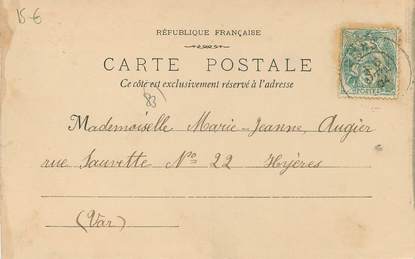 15 €
RÉPUBLIQUE FRANÇAISE
CARTE POSTALE
Ce côté est exclusivement réservé à l'adresse
83
Mademoiselle Marie-Jeanne, Augier
rue Sauvette No 22 Hyères
(Var)
POSTES